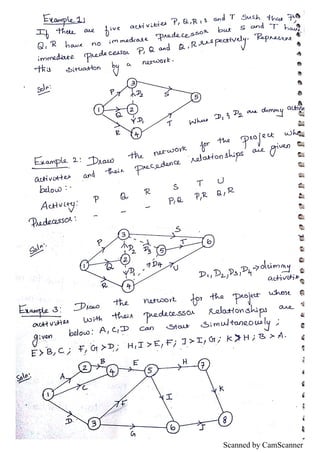 Example 1:
If there are five activities P, Q, R, S and T such that P,
Q, R have no immediate predecessor but S and T have
immediate predecessor P, Q and Q, R respectively. Represent
this situation by a network.
Soln:
3
P D2 S
1 Q 2 5
D1
R T
4
Where D1 & D2 are dummy
Example 2: Draw the network for the project whose
activities and their precedence relationships are given
below:-
Activity: P Q R S T U
Predecessor: - - - P,Q P,R Q,R
Soln:
3 S
P D2 D3 T
1 Q 2 5 6
D1 D4
R U
4
D1, D2, D3, D4 → dummy
Example 3: Draw the network for the project whose
activities with their predecessor relationships are
given below: A, C, D can start simultaneously;
E > B, C; F, G > D; H, I > E, F; J > I, G; K > H; B > A.
Soln:
B E H
2 4 5 7
A C
1 F I K
D
3 6 8
G J
Scanned by CamScanner